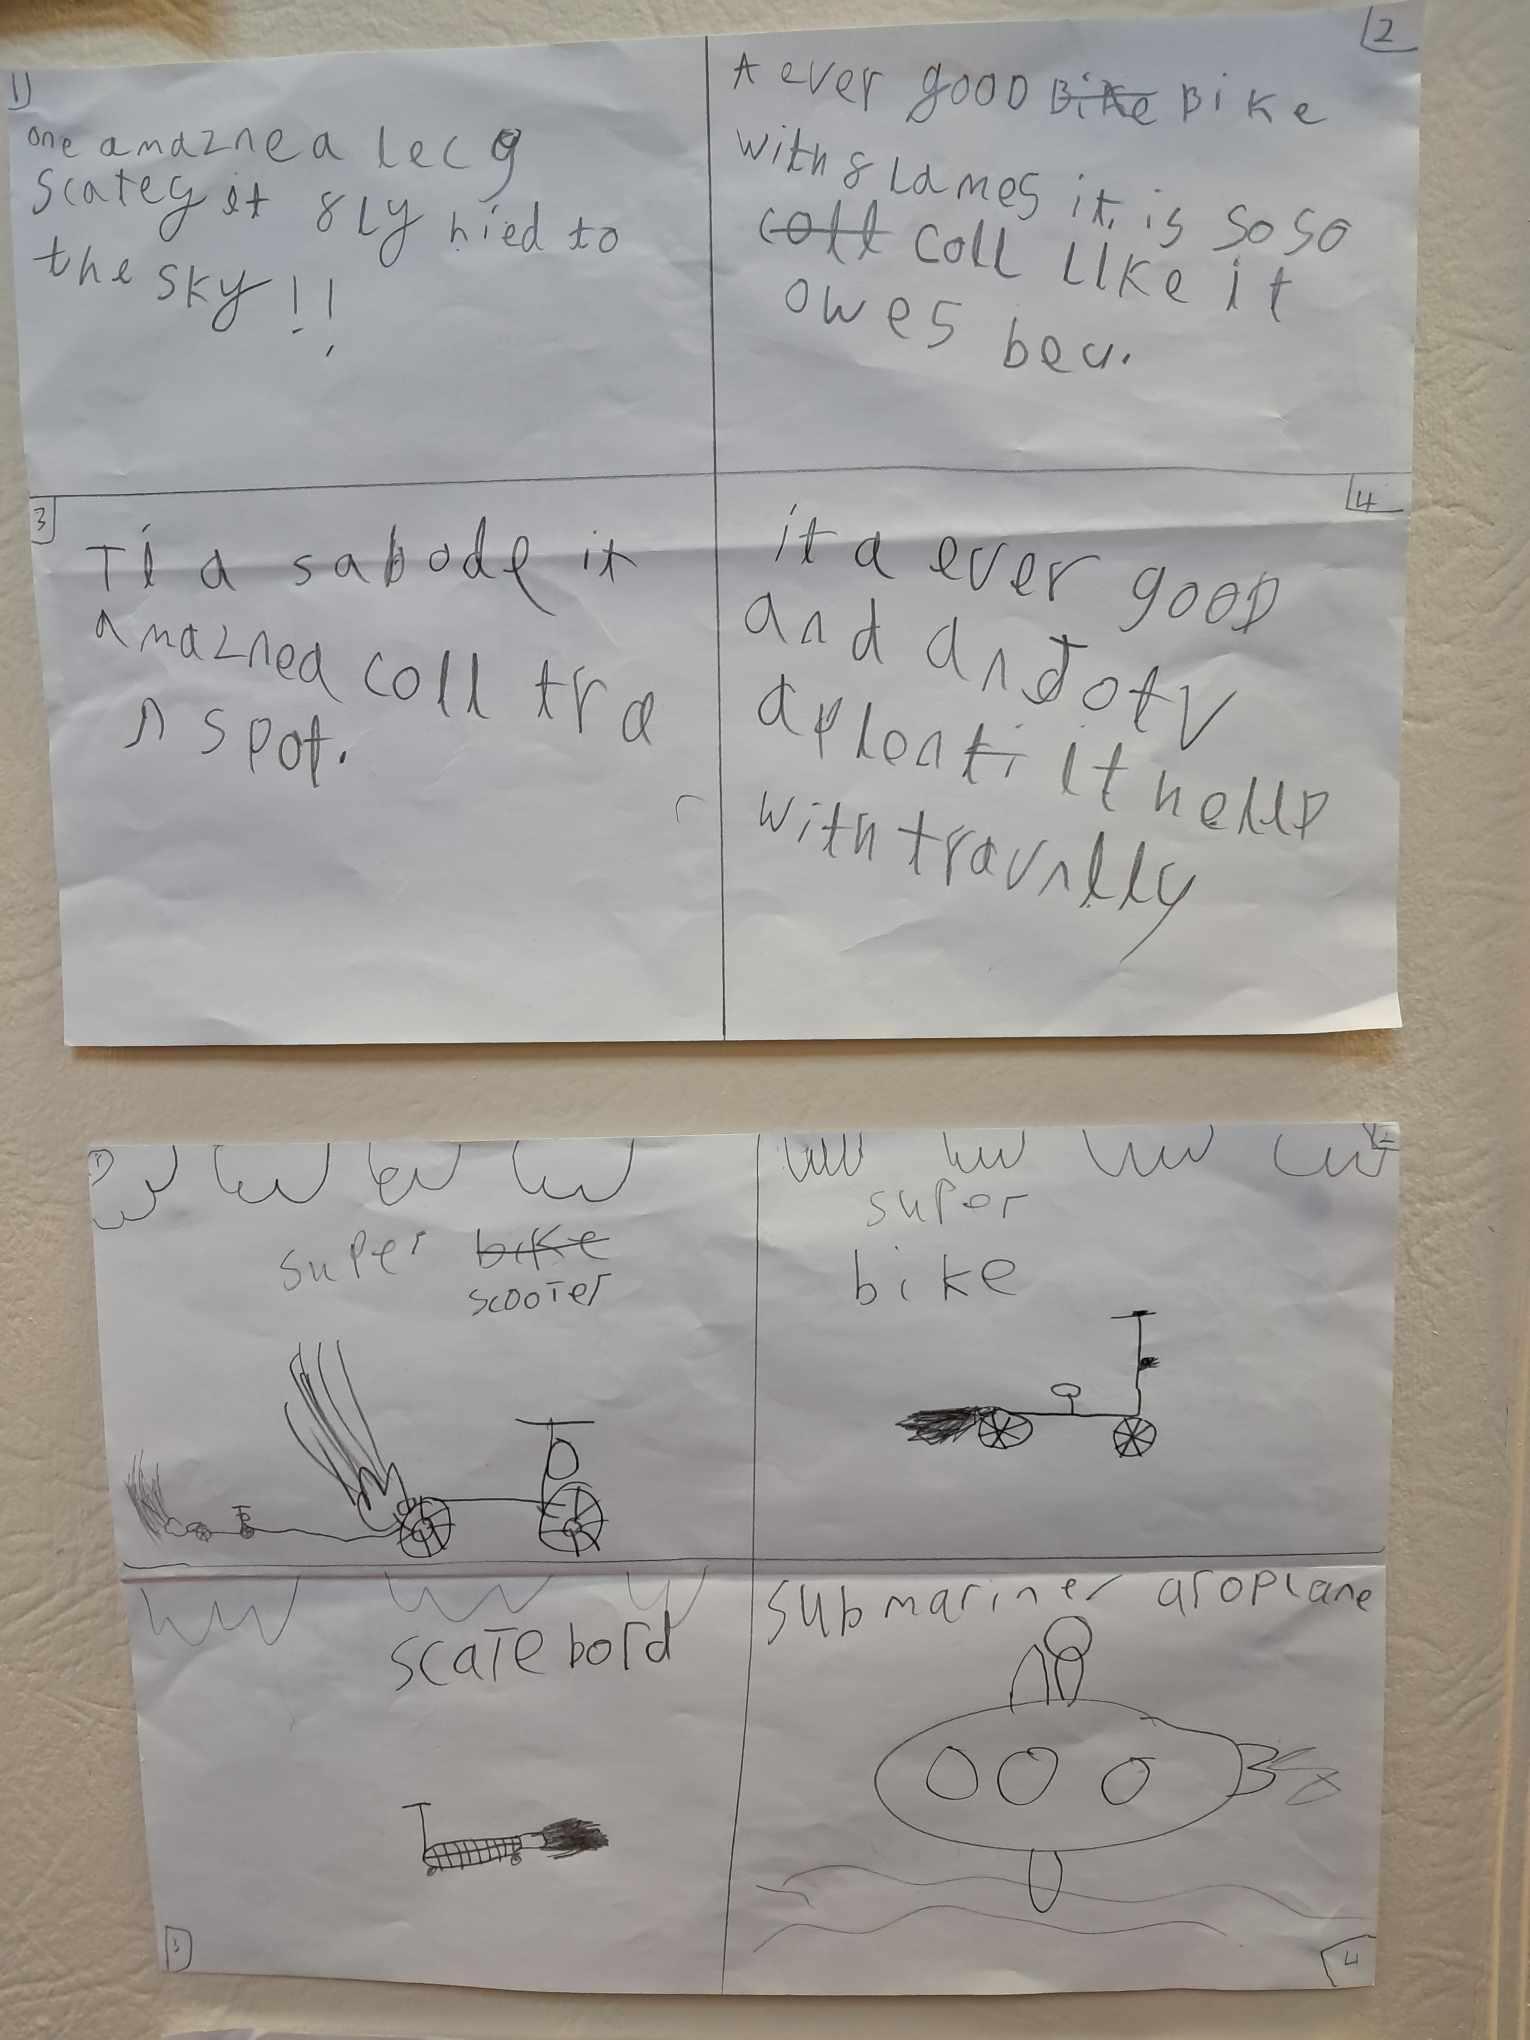 1)
one amaznea lecg
scatey it 8ly hied to
the sky!!
2
A ever gooD Bike Bike
with 8lames it is so so
coll coll like it
owes beu.
3
Ti a sabode it
amaznea coll tra
nspot.
4
it a ever gooD
and andotv
aplonti it hellp
with travnlly
1
super bike
scooter
2
super
bike
scate bord
3
submariner aroplane
4